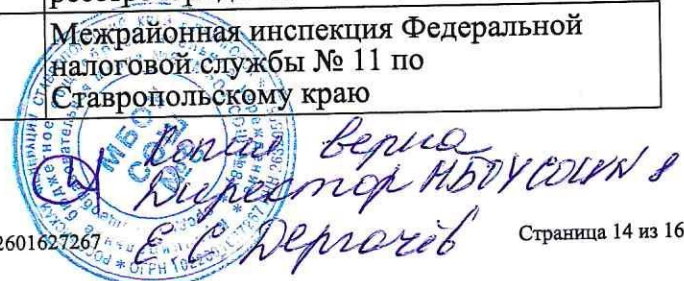 Межрайонная инспекция Федеральной
налоговой службы № 11 по
Ставропольскому краю
Копия верна
Директор МБОУ СОШ N 8
Е С Дергачёв
2601627267
Страница 14 из 16